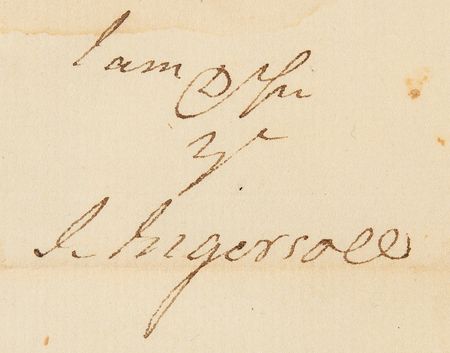 I am D Sir
yr
J. Ingersoll